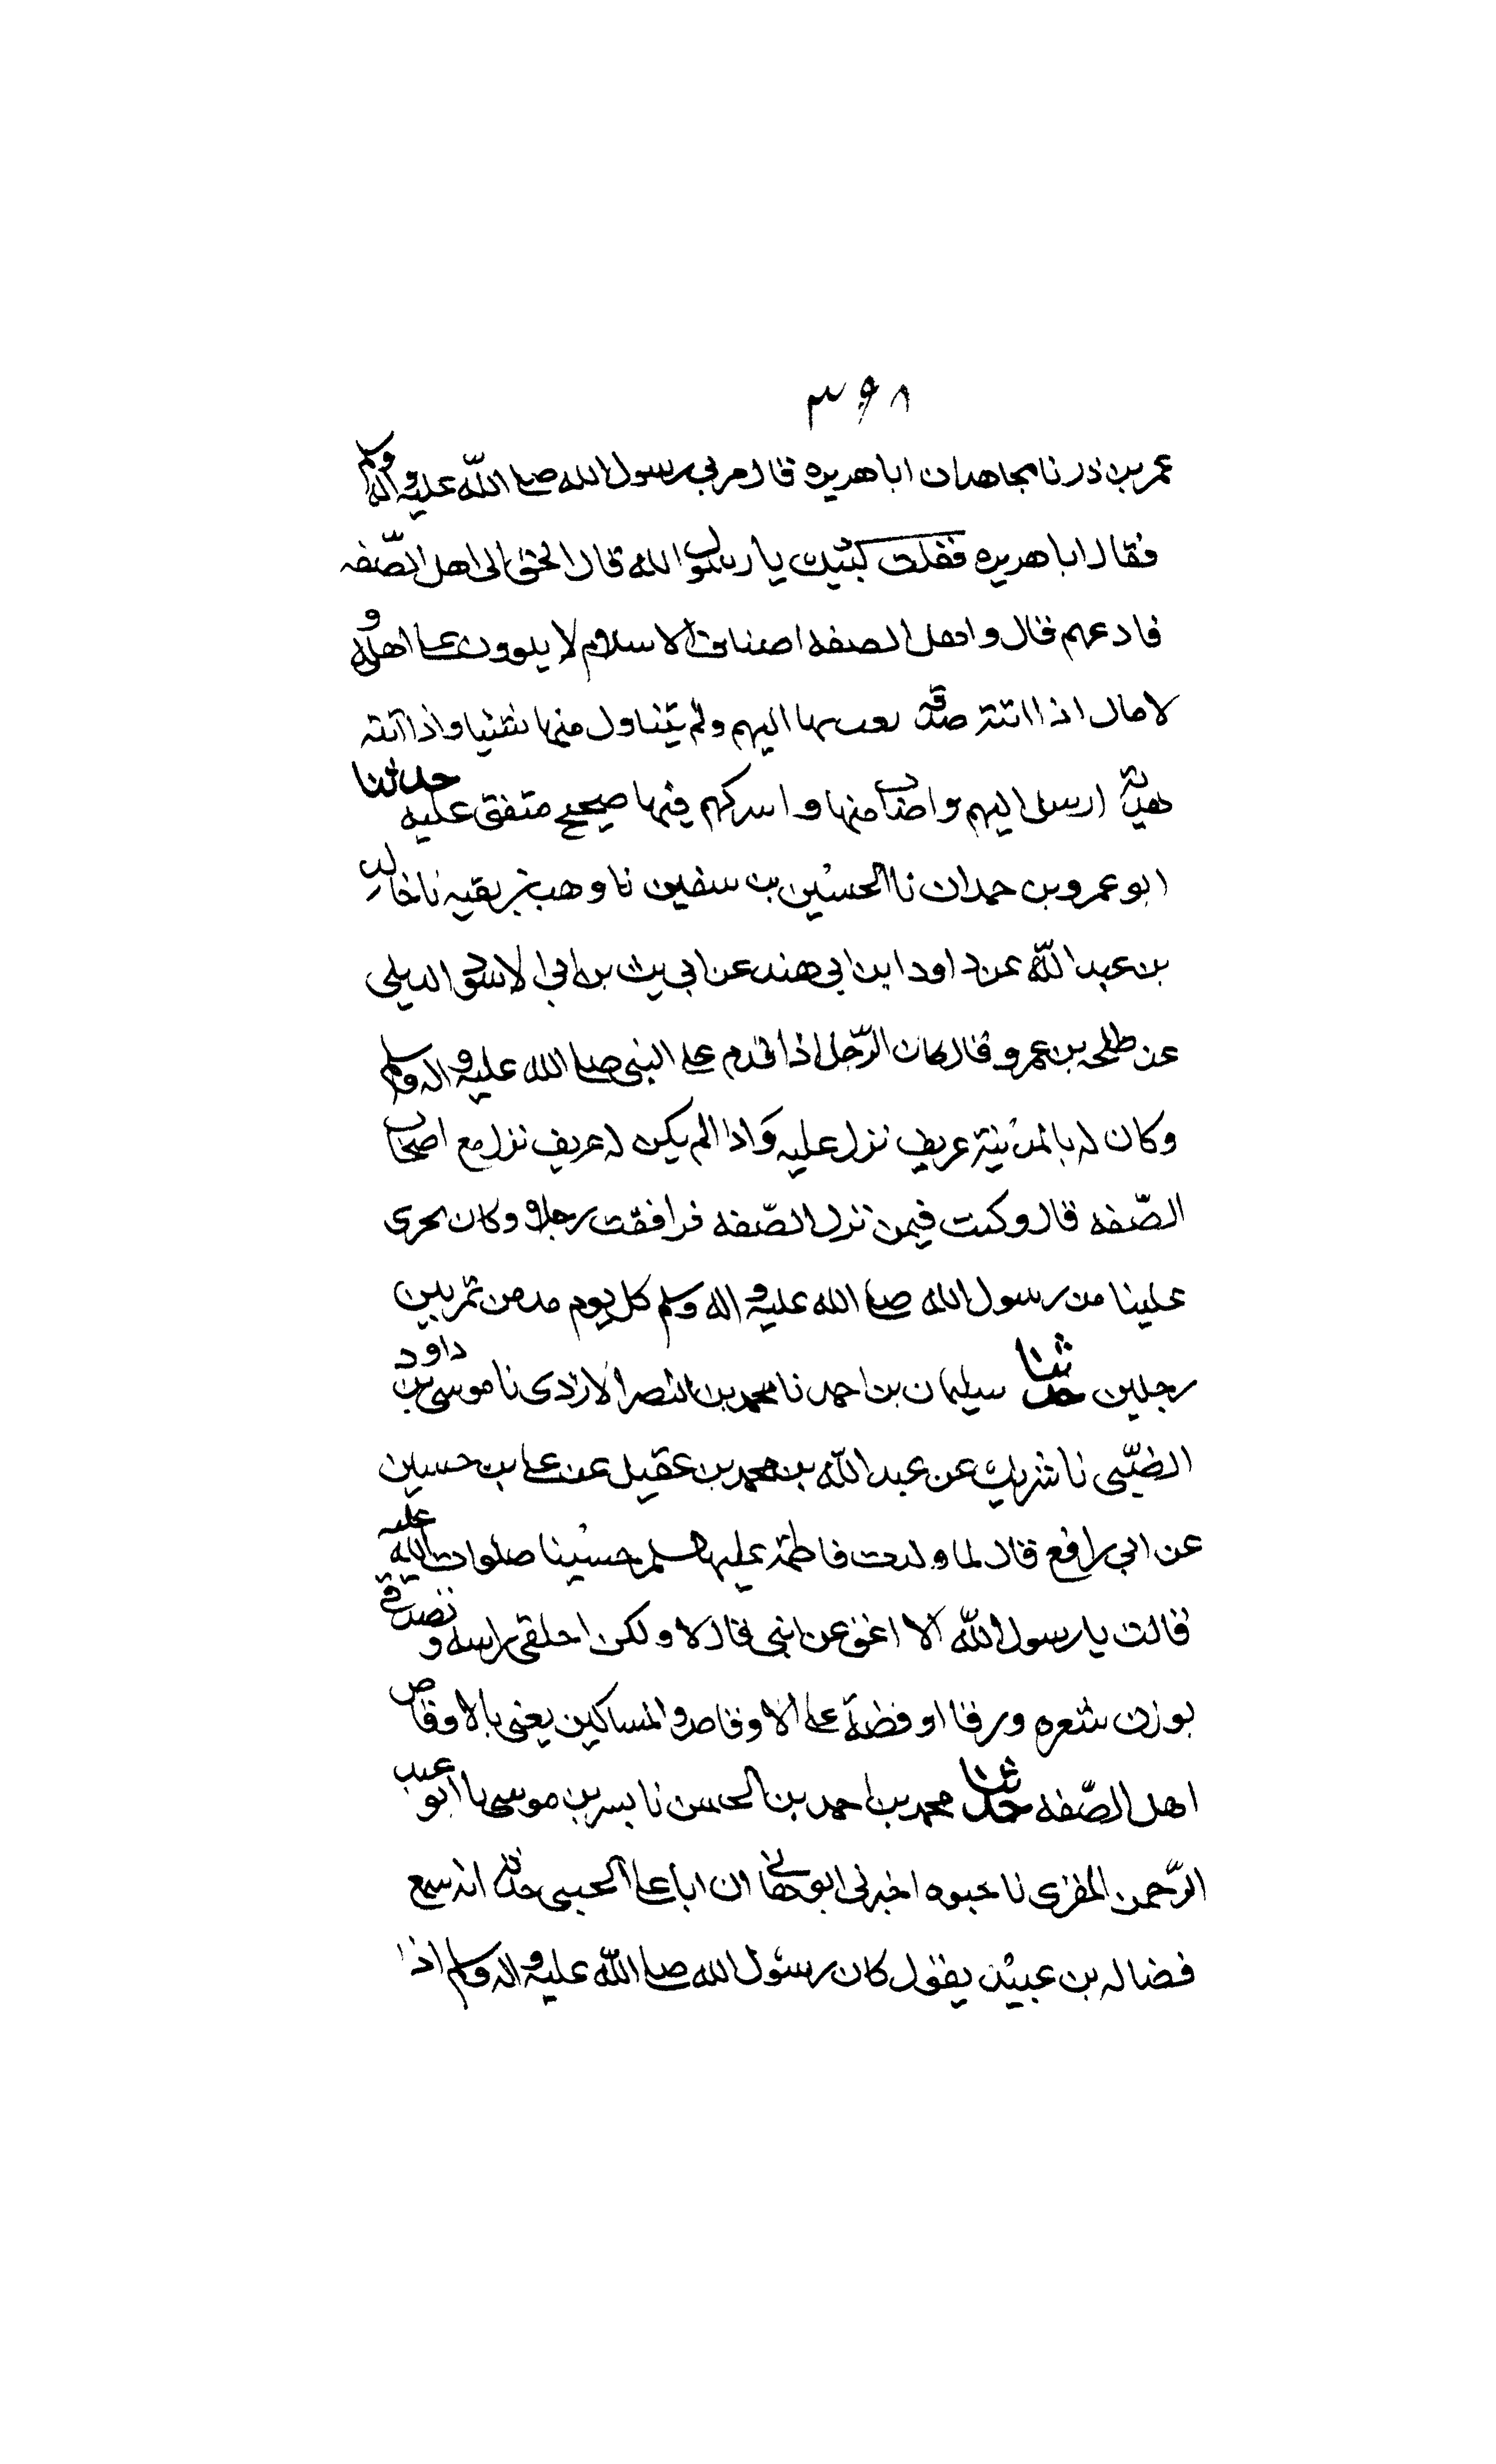 ٣٩٨
عمر بن ذر نا مجاهد ان ابا هريره قال مر بي رسول الله صلى الله عليه وآله وسلم
فقال ابا هريره فقلت لبيك يا رسول الله قال الحق الى اهل الصّفه
فادعهم قال واهل الصفه اصناف الاسلام لا يلوون على اهل و
لا مال اذا اتته صدقه بعث بها اليهم ولم يتناول منها شيئا واذا اتته
هديه ارسل اليهم واصاب منها واشركهم فيها صحيح متفق عليه حدثنا
ابو عمرو بن حمدان نا الحسين بن سفين نا وهب بن بقيه نا خالد
بن عبد الله عن داود ابن ابي هند عن ابي بن ابي الاسود الديلي
عن طلحه بن عمرو قال كان الرّجل اذا قدم على النبي صلى الله عليه وآله وسلم
وكان له بالمدينة عريف نزل عليه واذا لم يكن له عريف نزل مع اصحاب
الصّفه قال وكنت فيمن نزل الصّفه فرافقت رجلا وكان يجرى
علينا من رسول الله صلى الله عليه واله وسلم كل يوم مد من تمر بين
رجلين حدثنا سليمان بن احمد نا محمد بن النصر الازدى نا موسى بن داود
الضّبّى نا شريك عن عبد الله بن محمد بن عقيل عن على بن حسين
عن ابي رافع قال لما ولدت فاطمة عليها السلم حسينا صلوات الله عليه
قالت يا رسول الله الا اعق عن ابنى قال لا ولكن احلقى راسه وتصدقى
بوزن شعره ورقا او فضة على الاوقاص والمساكين يعنى بالاوقاص
اهل الصّفه حدثنا محمد بن احمد بن الحسن نا بسر بن موسى نا ابو عبد
الرّحمن المقرى نا حيوه اخبرنى ابو هانى ان ابا على الحبى حدثه انه سمع
فضاله بن عبيد يقول كان رسول الله صلى الله عليه واله وسلم اذا